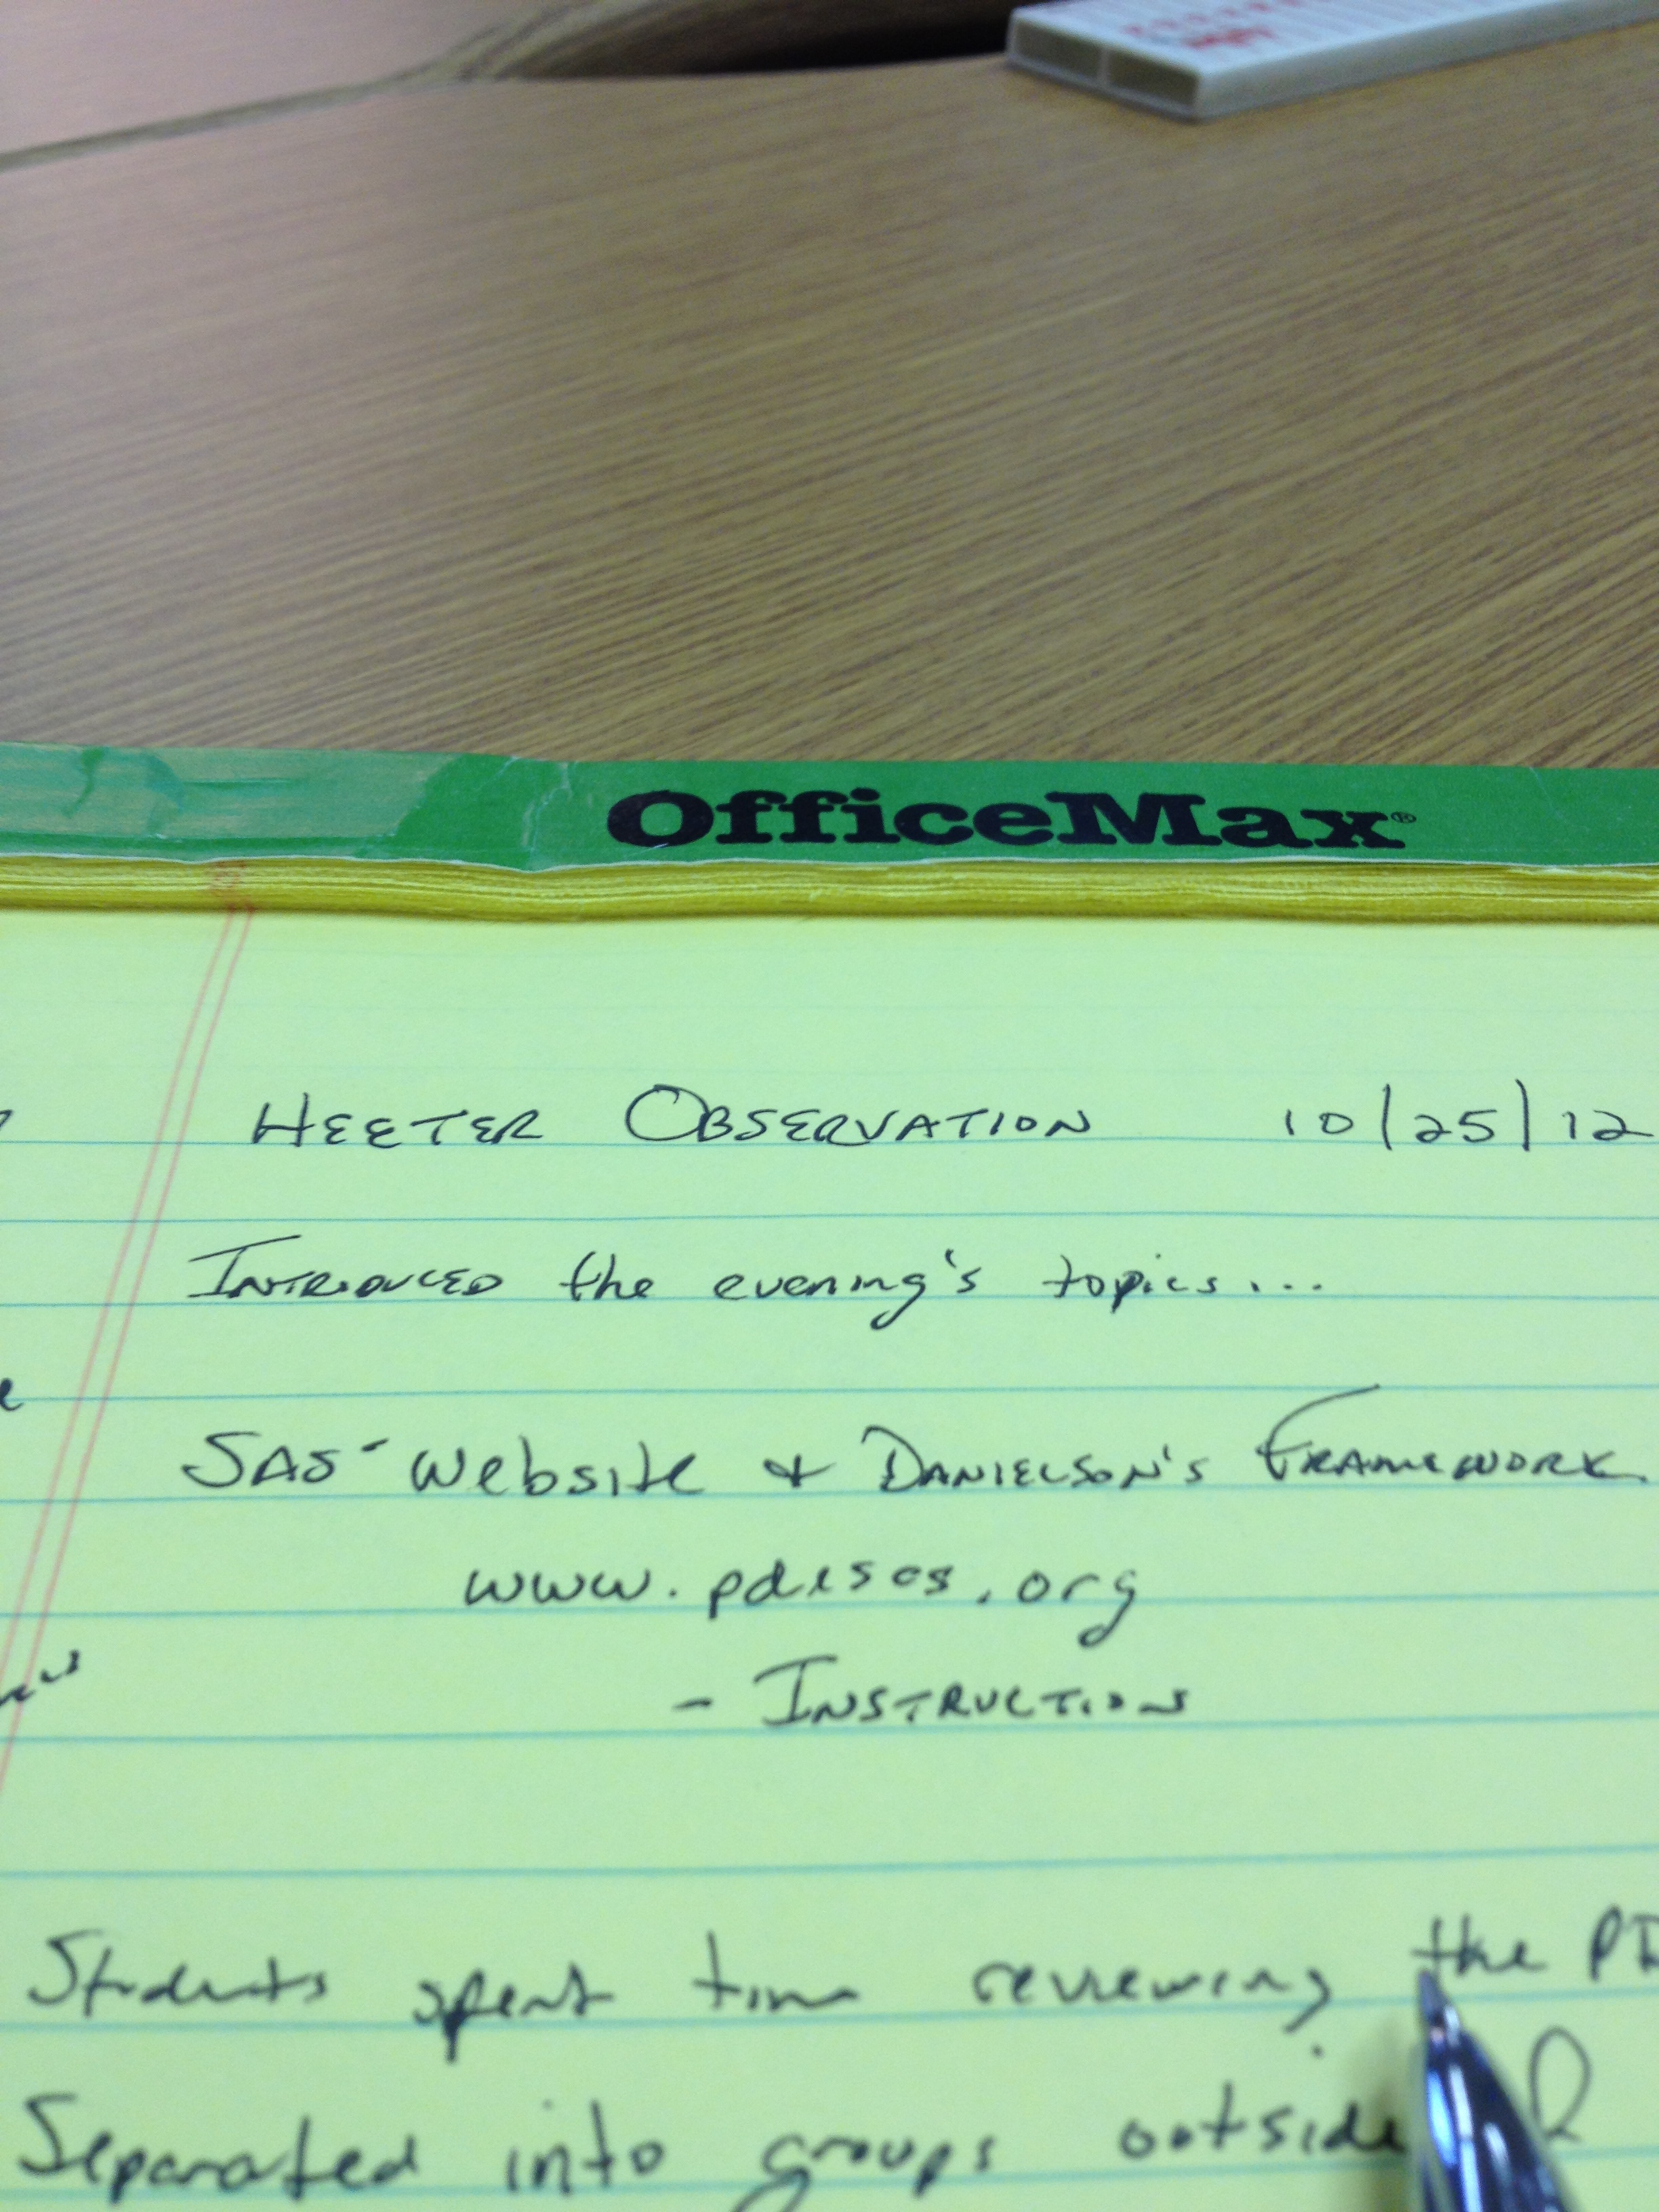 OfficeMax®
HEETER OBSERVATION 10/25/12
INTRODUCED the evening's topics...
SAS - Website & DANIELSON'S FRAMEWORK
www.pdesas.org
- INSTRUCTION
Students spent time reviewing the
Separated into groups outside